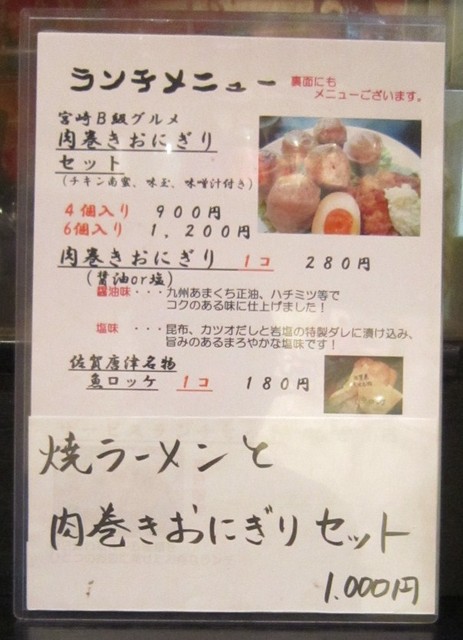 ランチメニュー
裏面にも
メニューございます。
宮崎B級グルメ
肉巻きおにぎり
セット
(チキン南蛮、味玉、味噌汁付き)
4個入り 900円
6個入り 1,200円
肉巻きおにぎり 1コ 280円
(醤油or塩)
醤油味・・・九州あまくち正油、ハチミツ等で
コクのある味に仕上げました!
塩味・・・昆布、カツオだしと岩塩の特製ダレに漬け込み、
旨みのあるまろやかな塩味です!
佐賀唐津名物
魚ロッケ 1コ 180円
焼ラーメンと
肉巻きおにぎりセット
1.000円